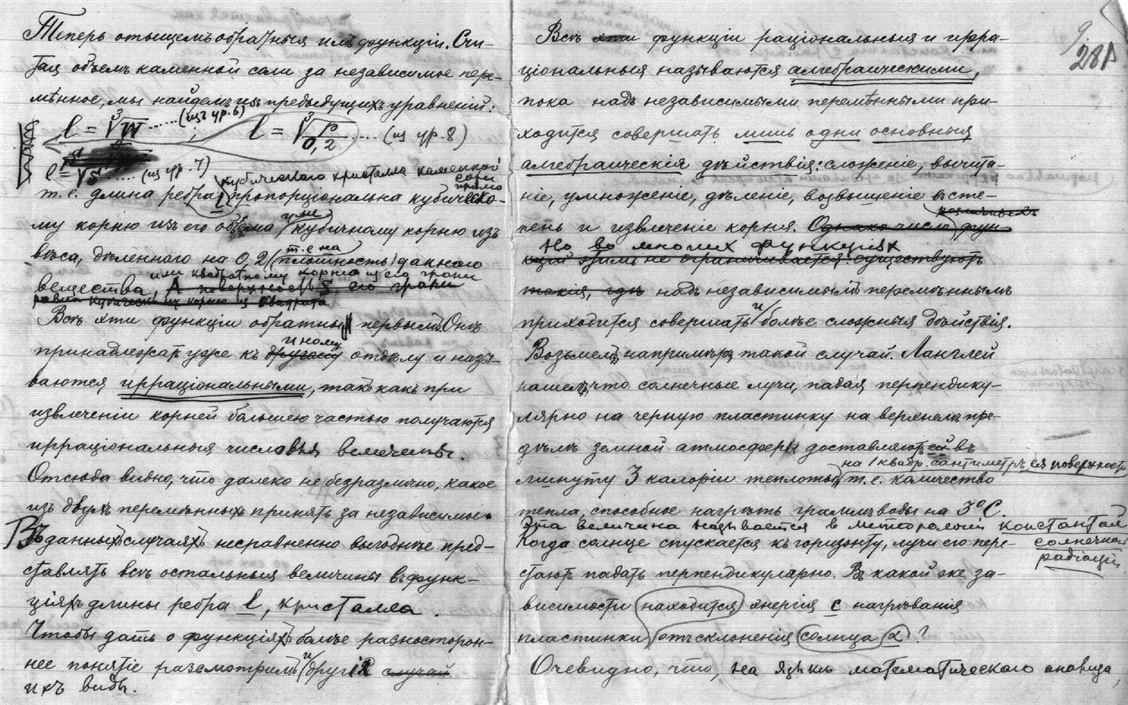 Теперь отыщемъ обратныя имъ функціи. Счи-
тая объемъ каменной соли за независимое пере-
мѣнное, мы найдемъ изъ предыдущихъ уравненій:
l = ∛W ...... (изъ ур. 6) ; l = ∛P/0,2 .... (из ур. 8)
l = √s ..... (из ур. 7)
кубическаго кристалла каменной соли прямо
т. е. длина ребра l пропорціональна кубичес-
кому корню изъ его объема, или кубичному корню изъ
вѣса, дѣленного на 0,2 (т. е на плотность) даннаго
или квадратному корню из его грани
вещества, А поверхность S его грани
равна кубическому корню из квадрата
Всѣ эти функціи обратны первымъ. Онѣ
иному
принадлежатъ уже къ другому отдѣлу и назы-
ваются ирраціональными, такъ какъ при
извлеченіи корней большею частью получаются
ирраціональныя числовыя величины.
Отсюда видно, что далеко не безразлично, какое
изъ двухъ перемѣнныхъ принять за независимое.
Въ данныхъ случаяхъ несравненно выгоднѣе пред-
ставлять всѣ остальныя величины въ функ-
ціяхъ длины ребра l, кристалла.
Чтобы дать о функціяхъ болѣе разносторон-
нее понятіе разсмотримъ и другіе случай
ихъ виды.
281
Всѣ эти функціи раціональныя и ирра-
ціональныя называются алгебраическими,
пока надъ независимыми перемѣнными при-
ходится совершать лишь одни основныя
алгебраическія дѣйствія: сложеніе, вычита-
ніе, умноженіе, дѣленіе, возвышеніе въ сте-
пень и извлеченіе корня. Однако число функ-
Но во многих функціях
цій этимъ не ограничивается: существуютъ
такія, гдѣ надъ независимымъ перемѣннымъ
приходится совершать и болѣе сложныя дѣйствія.
Возьмемъ, напримѣръ такой случай. Ланглей
нашелъ, что солнечные лучи, падая перпендику-
лярно на черную пластинку на верхнемъ пре-
дѣлѣ земной атмосферы доставляютъ ей въ
на 1 квадр. сантиметръ ея поверхности
минуту 3 калоріи теплоты, т. е. количество
тепла, способное нагрѣть граммъ воды на 3°С.
Эта величина называется в метеорологіи константой солнечной радіаціи.
Когда солнце спускается къ горизонту, лучи его пере-
стаютъ падать перпендикулярно. Въ какой же за-
висимости находится энергія с нагрѣванія
пластинки отъ склоненія солнца α?
Очевидно, что, на языкѣ математическаго анализа,